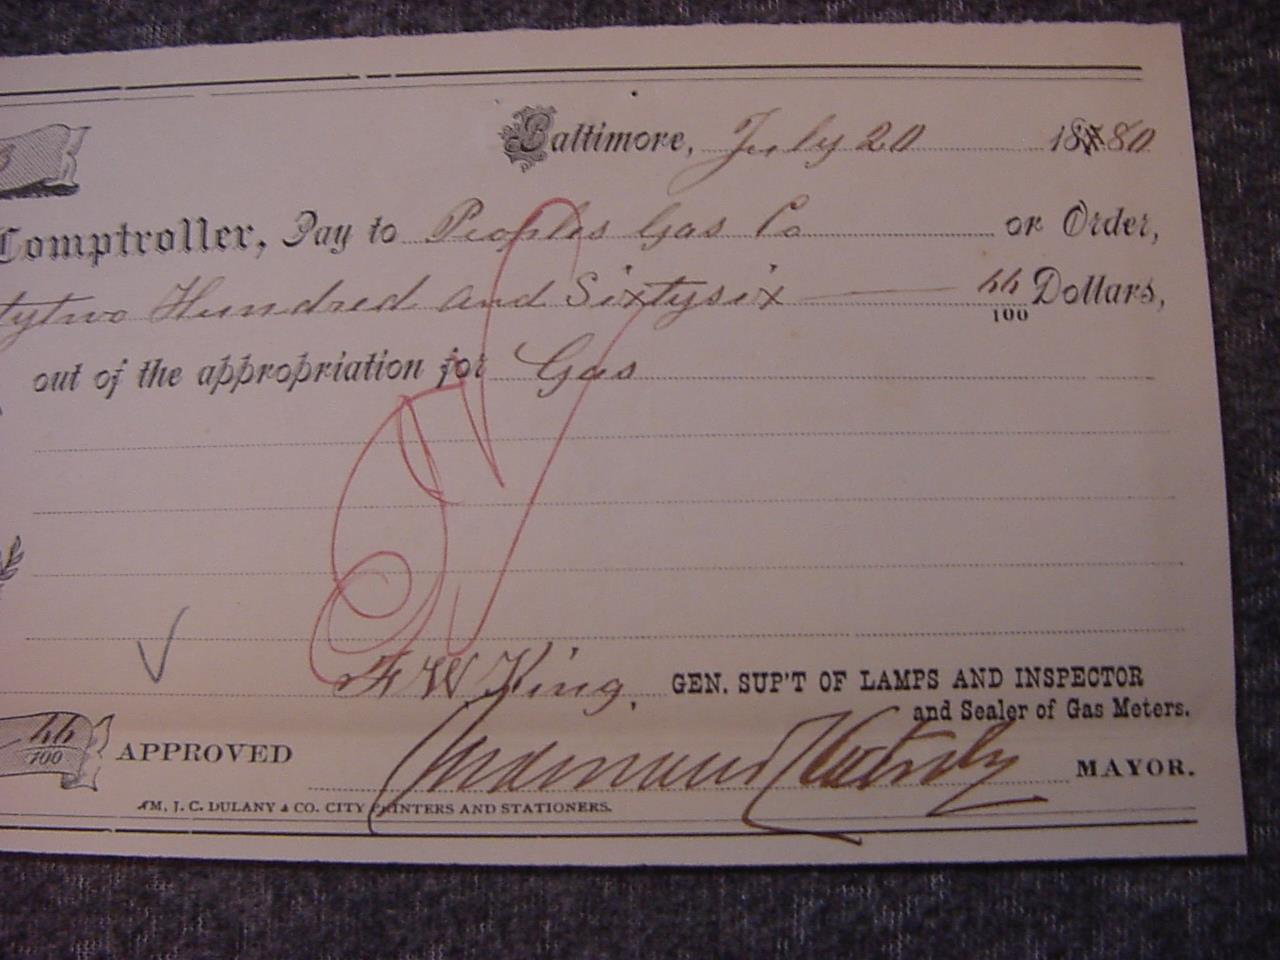 Baltimore, July 20 1880
Comptroller, Pay to Peoples Gas Co or Order,
tytwo Hundred and Sixtysix 66/100 Dollars,
out of the appropriation for Gas
F W King, GEN. SUP'T OF LAMPS AND INSPECTOR
and Sealer of Gas Meters.
66/100 APPROVED MAYOR.
WM, J. C. DULANY & CO. CITY PRINTERS AND STATIONERS.